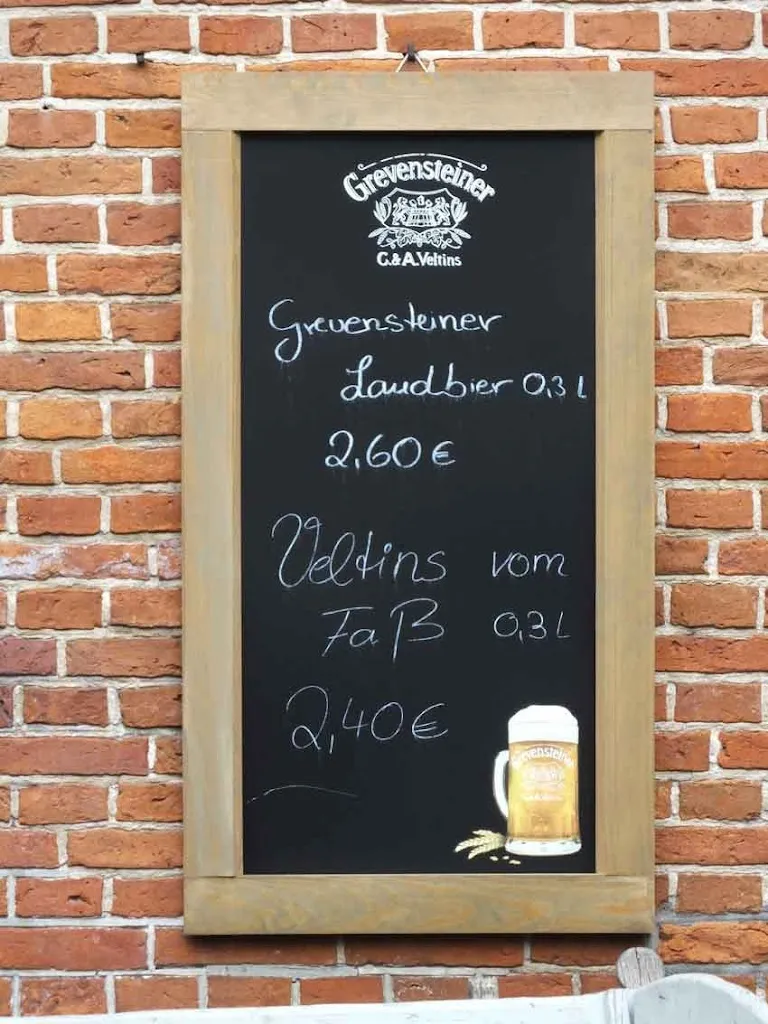 Grevensteiner
C.& A. Veltins
Grevensteiner
Landbier 0,3 L
2,60 €
Veltins vom
Faß 0,3 L
2,40 €
Grevensteiner
C.& A. Veltins